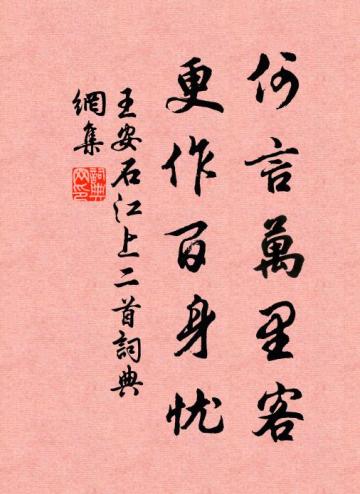 何言萬里客
更作百身忧
王安石江上二首詞典
網集